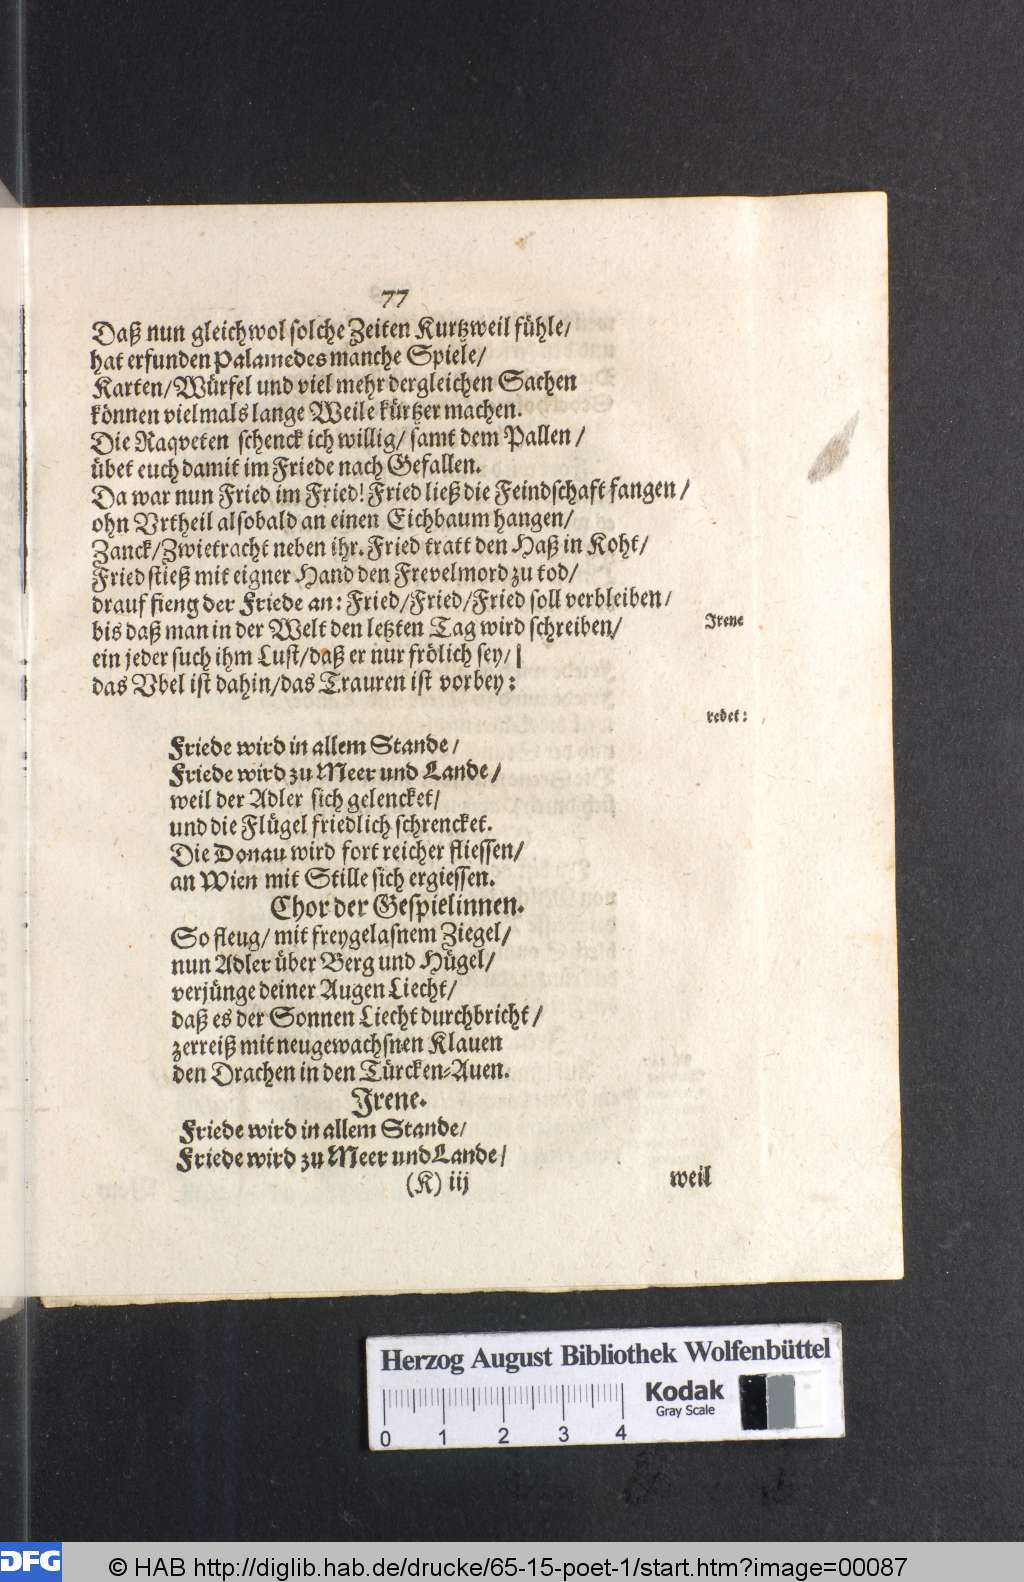 77
Daß nun gleichwol solche Zeiten Kurtzweil fühle/
hat erfunden Palamedes manche Spiele/
Karten/Würfel und viel mehr dergleichen Sachen
können vielmals lange Weile kürtzer machen.
Die Raqveten schenck ich willig/ samt dem Pallen /
übet euch damit im Friede nach Gefallen.
Da war nun Fried im Fried! Fried ließ die Feindschaft fangen /
ohn Vrtheil alsobald an einen Eichbaum hangen/
Zanck/Zwietracht neben ihr. Fried tratt den Haß in Koht/
Fried stieß mit eigner Hand den Frevelmord zu tod/
drauf fieng der Friede an: Fried/Fried/Fried soll verbleiben/
bis daß man in der Welt den letzten Tag wird schreiben/
Irene
ein jeder such ihm Lust/daß er nur frölich sey/
das Vbel ist dahin/das Trauren ist vorbey:
redet:
Friede wird in allem Stande/
Friede wird zu Meer und Lande/
weil der Adler sich gelencket/
und die Flügel friedlich schrencket.
Die Donau wird fort reicher fliessen/
an Wien mit Stille sich ergiessen.
Chor der Gespielinnen.
So fleug/ mit freygelasnem Ziegel/
nun Adler über Berg und Hügel/
verjünge deiner Augen Liecht/
daß es der Sonnen Liecht durchbricht/
zerreiß mit neugewachsnen Klauen
den Drachen in den Türcken-Auen.
Irene.
Friede wird in allem Stande/
Friede wird zu Meer und Lande/
(K) iij
weil
Herzog August Bibliothek Wolfenbüttel
Kodak
Gray Scale
0 1 2 3 4
DFG
© HAB http://diglib.hab.de/drucke/65-15-poet-1/start.htm?image=00087